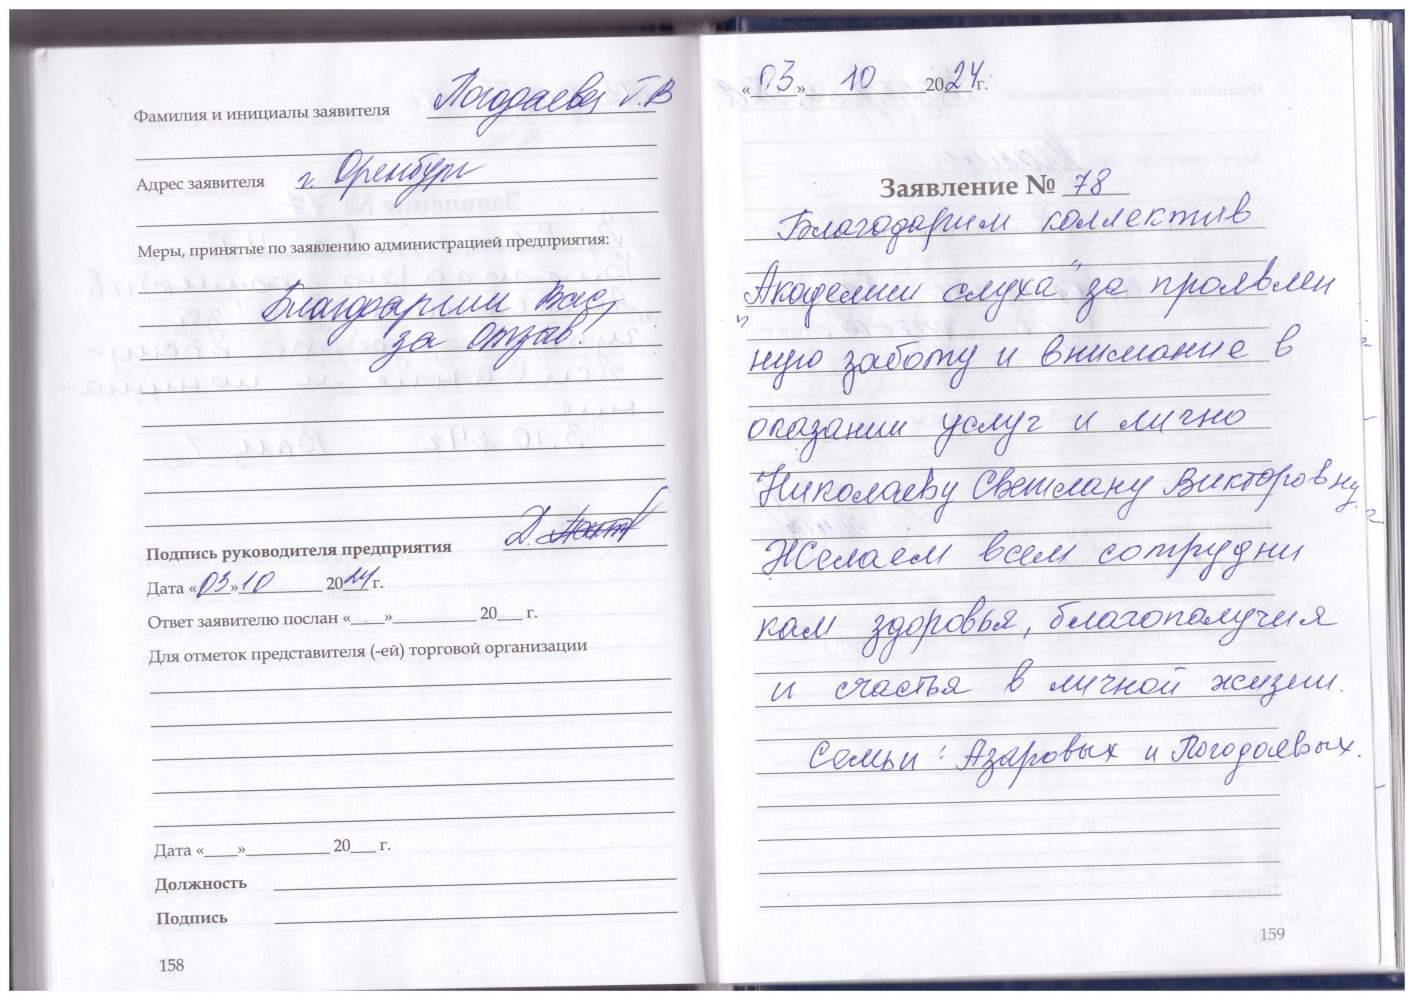 Фамилия и инициалы заявителя Погодаева Т.В
Адрес заявителя г. Оренбург
Меры, принятые по заявлению администрацией предприятия:
Благодарим Вас
за отзыв!
Подпись руководителя предприятия
Дата «03»10 2024г.
Ответ заявителю послан «____»__________ 20___ г.
Для отметок представителя (-ей) торговой организации
Дата «____»__________ 20___ г.
Должность
Подпись
158
«03» 10 2024г.
Заявление № 78
Благодарим коллектив
"Академии слуха" за проявлен
ную заботу и внимание в
оказании услуг и лично
Николаеву Светлану Викторовну.
Желаем всем сотрудни
кам здоровья, благополучия
и счастья в личной жизни.
Семьи: Азаровых и Погодаевых.
159